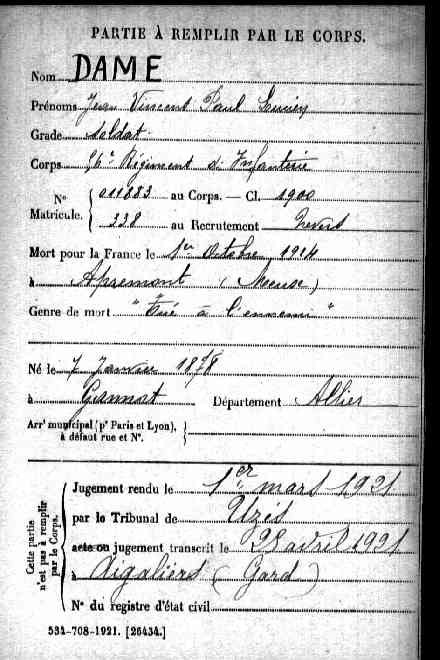 PARTIE À REMPLIR PAR LE CORPS.
Nom DAME
Prénoms Jean Vincent Paul Lucien
Grade soldat
Corps 96e Régiment d'Infanterie
N° 011883 au Corps. — Cl. 1900
Matricule. 338 au Recrutement
Mort pour la France le 1er Octobre 1914
à Apremont (Meuse)
Genre de mort "Tué à l'ennemi"
Né le 7 Janvier 1878
à Gannat Département Allier
Arrt municipal (pr Paris et Lyon),
à défaut rue et N°.
Cette partie
n'est pas à remplir
par le Corps.
Jugement rendu le 1er mars 1921
par le Tribunal de Uzès
acte ou jugement transcrit le 28 avril 1921
à Aigaliers (Gard)
N° du registre d'état civil
534-708-1921. [26434.]